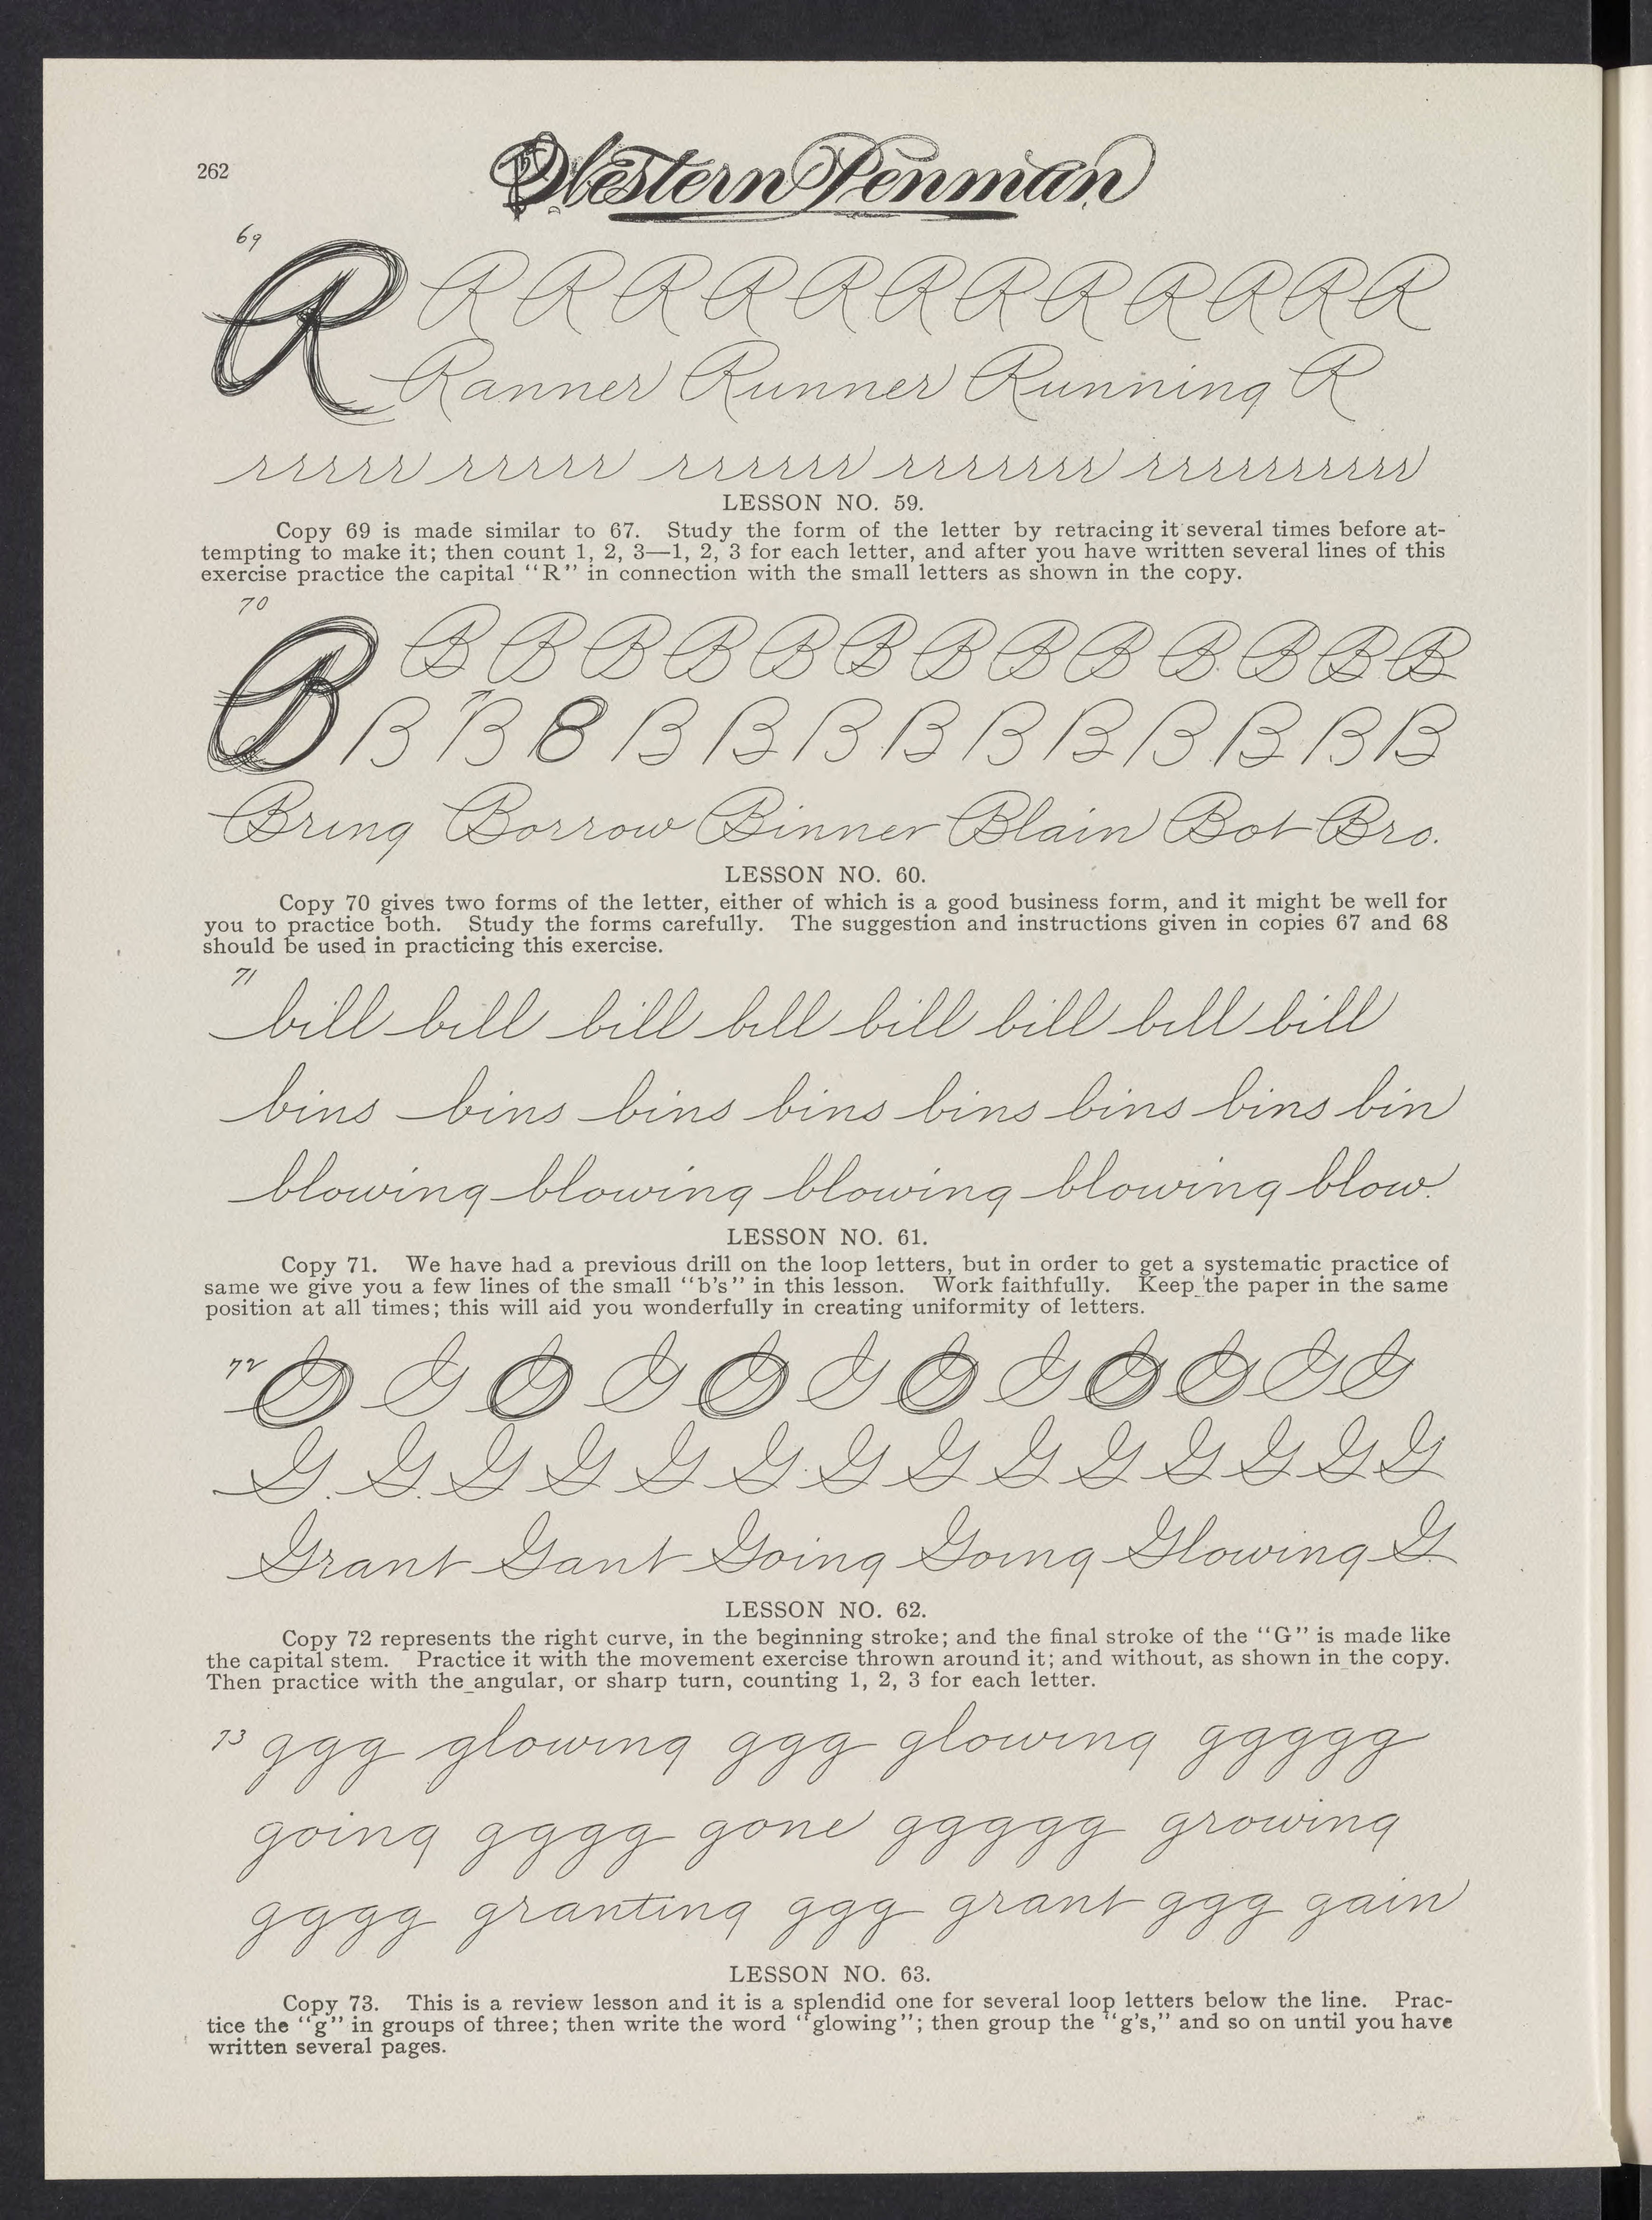 262
Western Penman
69
R R R R R R R R R R R R R
Ranner Runner Running R
rrrrr rrrrr rrrrrr rrrrrrr rrrrrrrrrr
LESSON NO. 59.
Copy 69 is made similar to 67. Study the form of the letter by retracing it several times before at-
tempting to make it; then count 1, 2, 3—1, 2, 3 for each letter, and after you have written several lines of this
exercise practice the capital "R" in connection with the small letters as shown in the copy.
70
B B B B B B B B B B B B B B
B B B B B B B B B B B B B
Bring Borrow Binner Blain Bot Bro.
LESSON NO. 60.
Copy 70 gives two forms of the letter, either of which is a good business form, and it might be well for
you to practice both. Study the forms carefully. The suggestion and instructions given in copies 67 and 68
should be used in practicing this exercise.
71
bill bill bill bill bill bill bill bill
bins bins bins bins bins bins bins bin
blowing blowing blowing blowing blow.
LESSON NO. 61.
Copy 71. We have had a previous drill on the loop letters, but in order to get a systematic practice of
same we give you a few lines of the small "b's" in this lesson. Work faithfully. Keep the paper in the same
position at all times; this will aid you wonderfully in creating uniformity of letters.
72
G G G G G G G G G G G G
G G G G G G G G G G G G G G
Grant Gant Going Going Glowing G
LESSON NO. 62.
Copy 72 represents the right curve, in the beginning stroke; and the final stroke of the "G" is made like
the capital stem. Practice it with the movement exercise thrown around it; and without, as shown in the copy.
Then practice with the angular, or sharp turn, counting 1, 2, 3 for each letter.
73 ggg glowing ggg glowing ggggg
going gggg gone ggggg growing
gggg granting ggg grant ggg gain
LESSON NO. 63.
Copy 73. This is a review lesson and it is a splendid one for several loop letters below the line. Prac-
tice the "g" in groups of three; then write the word "glowing"; then group the "g's," and so on until you have
written several pages.